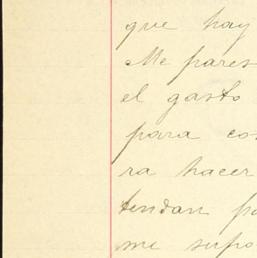 que hay
Me pares
el gasto
para cos
ra hacer
tendan pa
me supo